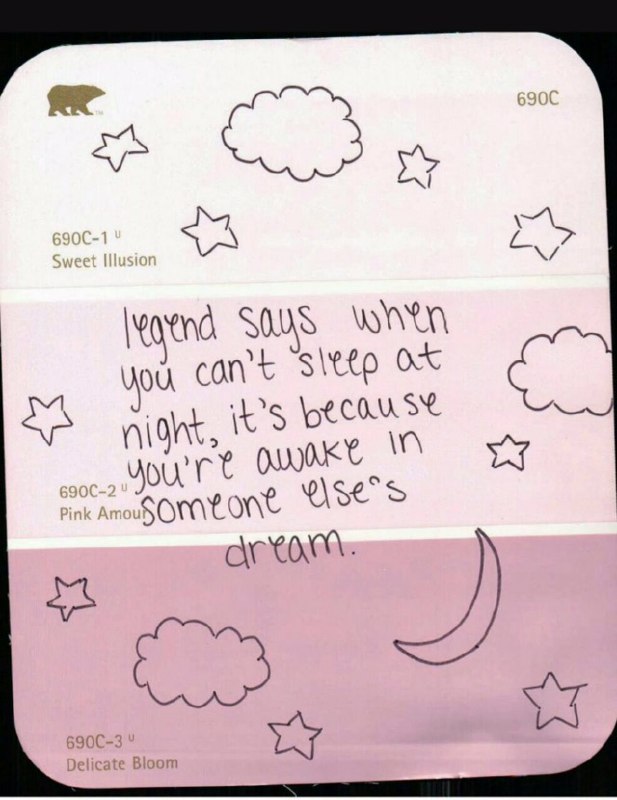 690C
690C-1 U
Sweet Illusion
legend says when
you can't sleep at
night, it's because
you're awake in
someone else's
dream.
690C-2 U
Pink Amour
690C-3 U
Delicate Bloom